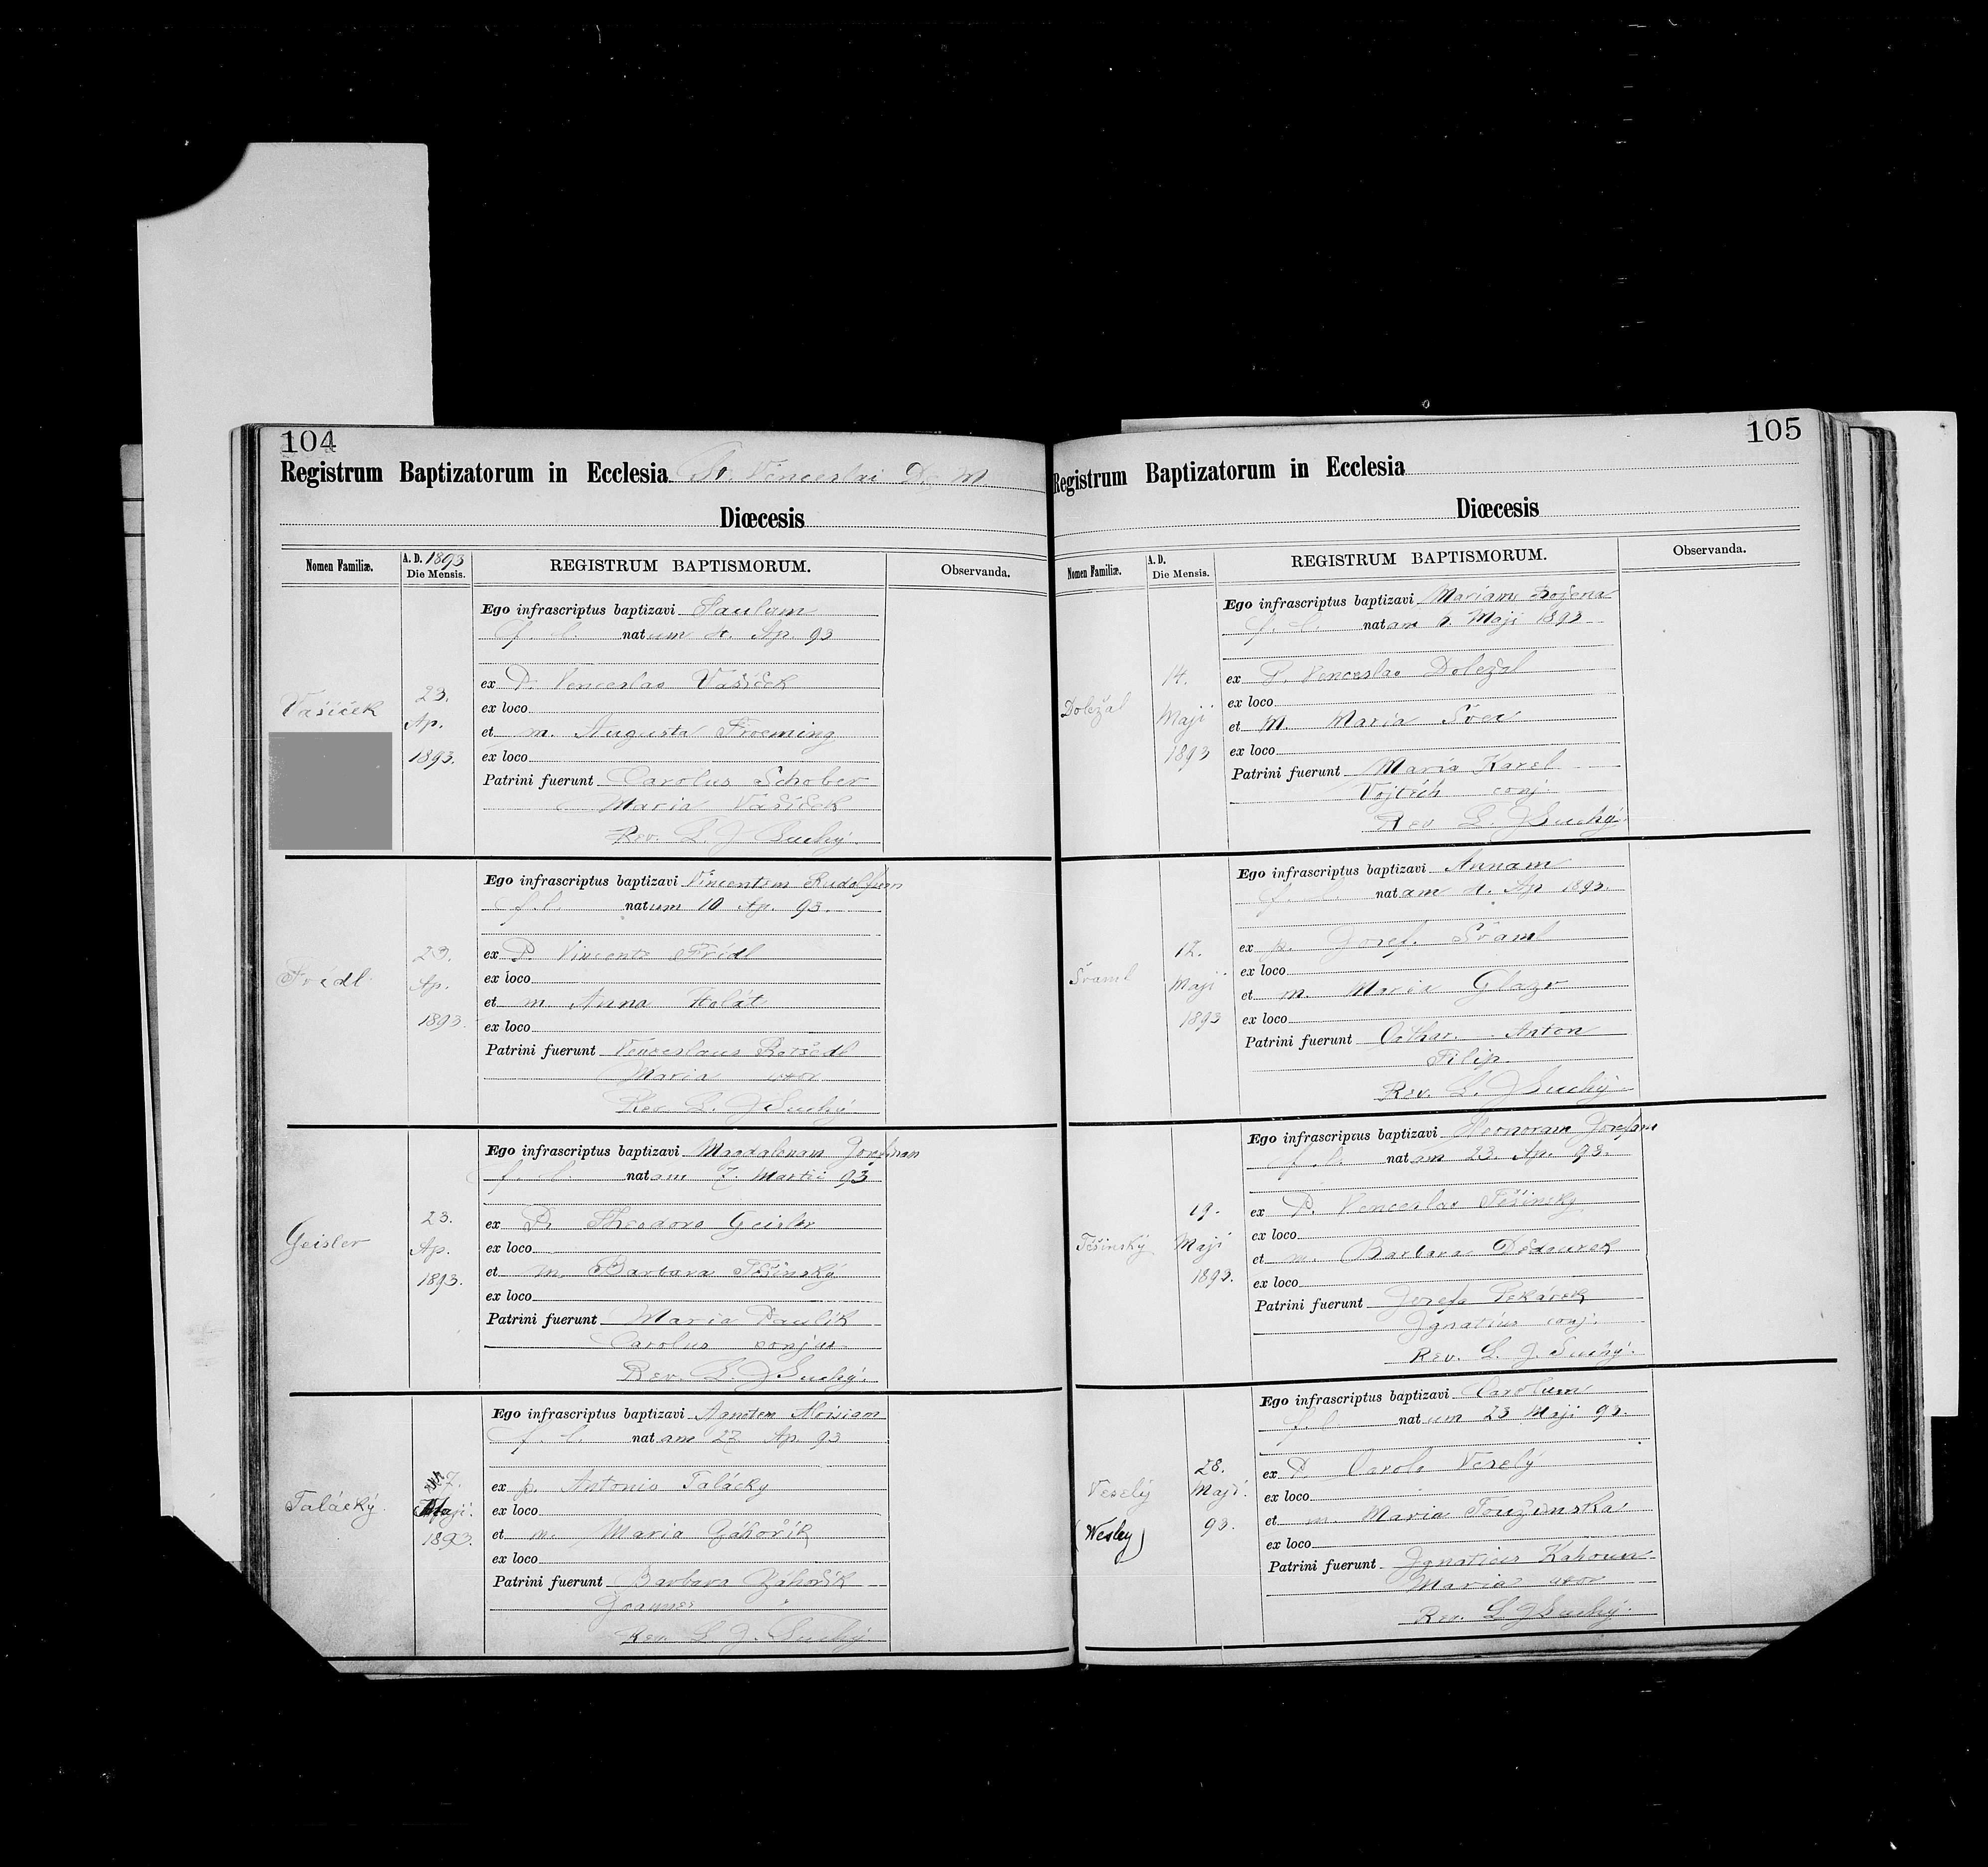 104
Registrum Baptizatorum in Ecclesia St. Venceslai D. M.
Diœcesis
Nomen Familiæ.
A. D. 1893
Die Mensis.
REGISTRUM BAPTISMORUM.
Observanda.
Vašíček
23.
Ap.
1893.
Ego infrascriptus baptizavi Paulum
f. l. natum 4. Ap. 93
ex P. Venceslao Vašíček
ex loco
et m. Augusta Froeming
ex loco
Patrini fuerunt Carolus Schober
Maria Vašíček
Rev. L. J Suchý.
Fridl
23.
Ap.
1893.
Ego infrascriptus baptizavi Vincentum Rudolfum
f. l. natum 10 Ap. 93.
ex P Vincento Fridl
ex loco
et m. Anna Holát
ex loco
Patrini fuerunt Venceslaus
Maria uxor
Rev. L. J Suchý.
Geisler
23.
Ap.
1893.
Ego infrascriptus baptizavi Magdalenam
f. l. natam 7. Martii 93
ex P. Theodoro Geisler
ex loco
et m. Barbara Těšinský
ex loco
Patrini fuerunt Maria Paulík
Carolus conjux
Rev. L. J Suchý.
Talácký
7.
Maji.
1893.
Ego infrascriptus baptizavi Agnetem Aloisiam
f. l. natam 27 Ap. 93
ex p. Antonio Talácky
ex loco
et m. Maria Záhořík
ex loco
Patrini fuerunt Barbara Záhořík
Joannes "
Rev. L. J. Suchý
105
Registrum Baptizatorum in Ecclesia
Diœcesis
Nomen Familiæ.
A. D.
Die Mensis.
REGISTRUM BAPTISMORUM.
Observanda.
Doležal
14.
Maji
1893
Ego infrascriptus baptizavi Mariam Božena
f. l. natam Maji 1893
ex P. Venceslao Doležal
ex loco
et M. Maria
ex loco
Patrini fuerunt Maria Karel
Vojtěch conj.
Rev L. J Suchý.
Šraml
12.
Maji
1893
Ego infrascriptus baptizavi Annam
f. l. natam 4. Ap 1893.
ex p. Josef. Šraml
ex loco
et m. Maria Glazr
ex loco
Patrini fuerunt Anton
Filip.
Rev. L. J Suchý.
Těšinský
19.
Maji
1893.
Ego infrascriptus baptizavi
f. l. natam 23. Ap. 93.
ex P. Venceslao Těšinsky
ex loco
et m. Barbara Dědourek
ex loco
Patrini fuerunt Josefa Pekárek
Ignatius conj.
Rev. L. J. Suchý.
Veselý
(Wesley)
28.
Maji.
93.
Ego infrascriptus baptizavi Carolum
f. l. natum 23 Maji 93.
ex P. Carolo Veselý
ex loco
et m. Maria Toužimska
ex loco
Patrini fuerunt Ignatius Kahoun
Maria uxor
Rev. L J Suchý.